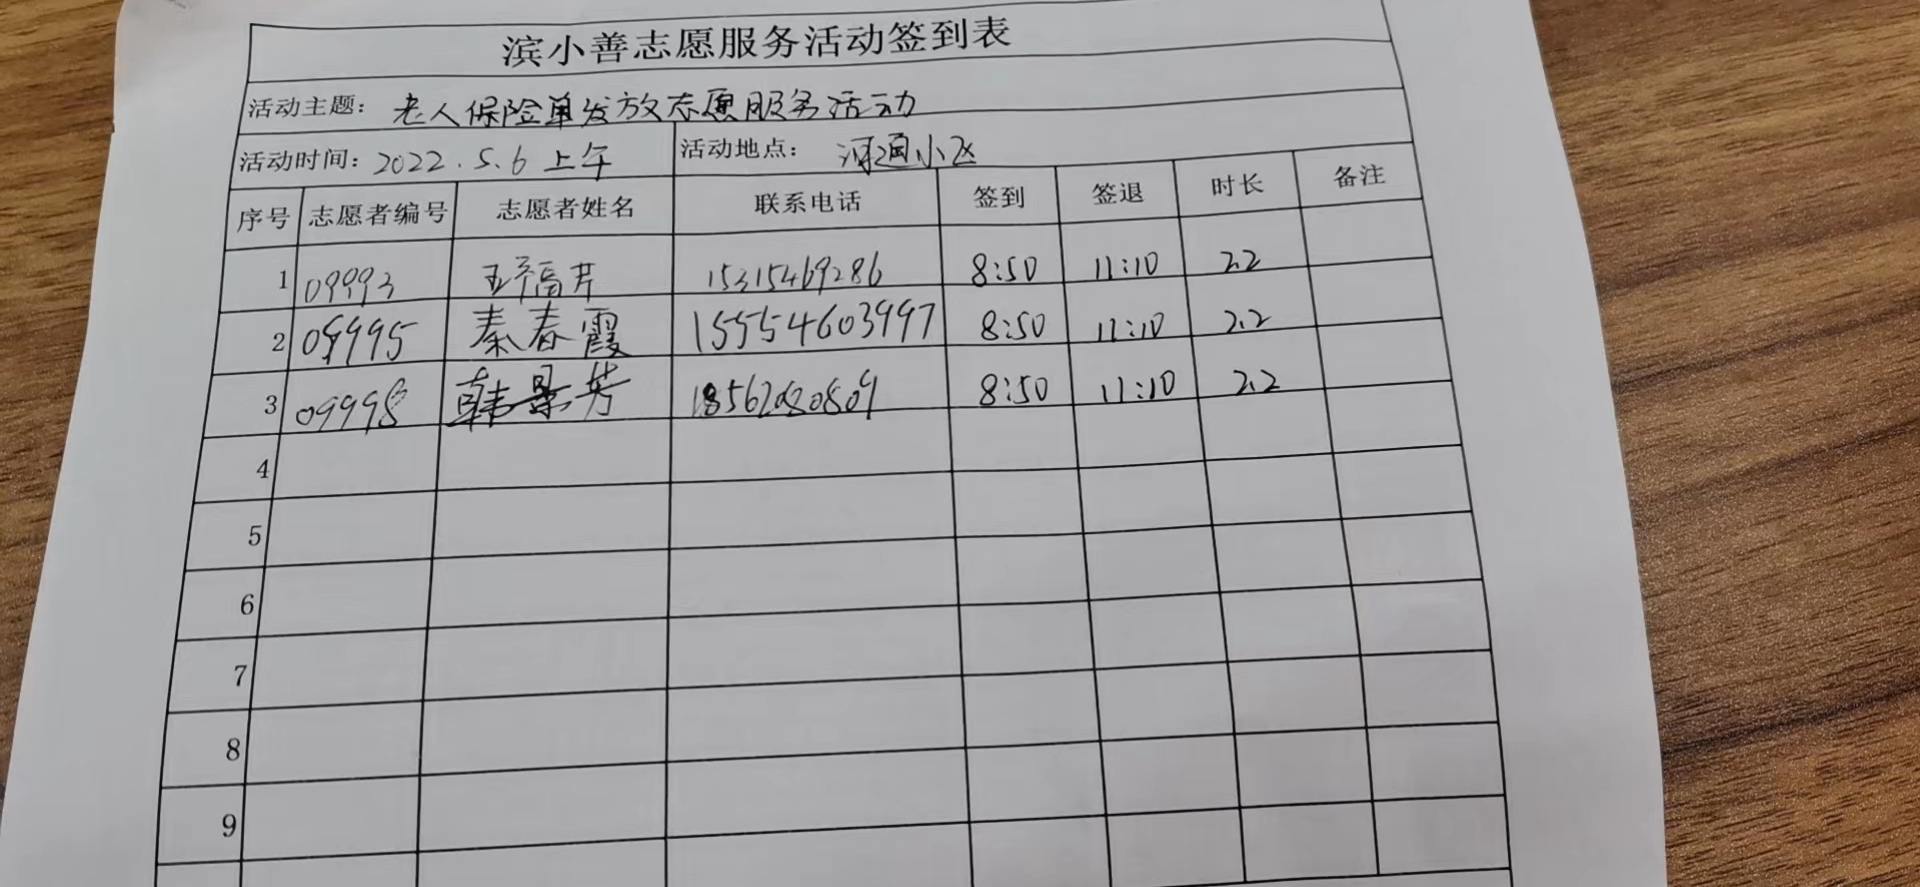 滨小善志愿服务活动签到表
活动主题：老人保险单发放志愿服务活动
活动时间：2022.5.6 上午 活动地点：河通小区
序号 志愿者编号 志愿者姓名 联系电话 签到 签退 时长 备注
1 09993 15315469286 8:50 11:10 2.2
2 09995 秦春霞 15554603997 8:50 11:10 2.2
3 09998 韩景芳 8:50 11:10 2.2
4
5
6
7
8
9